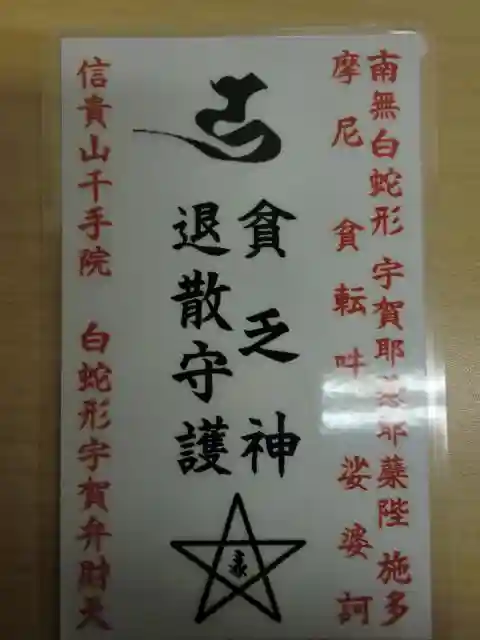 南無白蛇形 宇賀耶 耶蘖陛 施多
摩尼 貧転吽 娑婆訶
貧乏神
退散守護
信貴山千手院 白蛇形宇賀弁財天